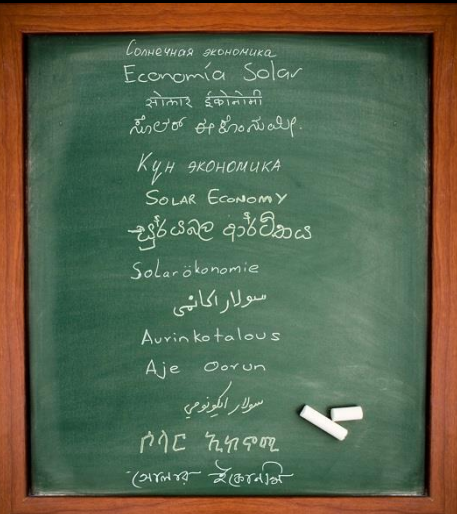 Солнечная экономика
Economía Solar
सोलार ईकोनोमी
ಸೋಲಾರ್ ಈಕೊನಮಿ.
Күн экономика
SOLAR ECONOMY
සූර්යබල ආර්ථිකය
Solarökonomie
سولار اکانمی
Aurinkotalous
Aje Oorun
سولار ايکونومي
ሶላር ኢኮኖሚ
সোলার ইকোনমি